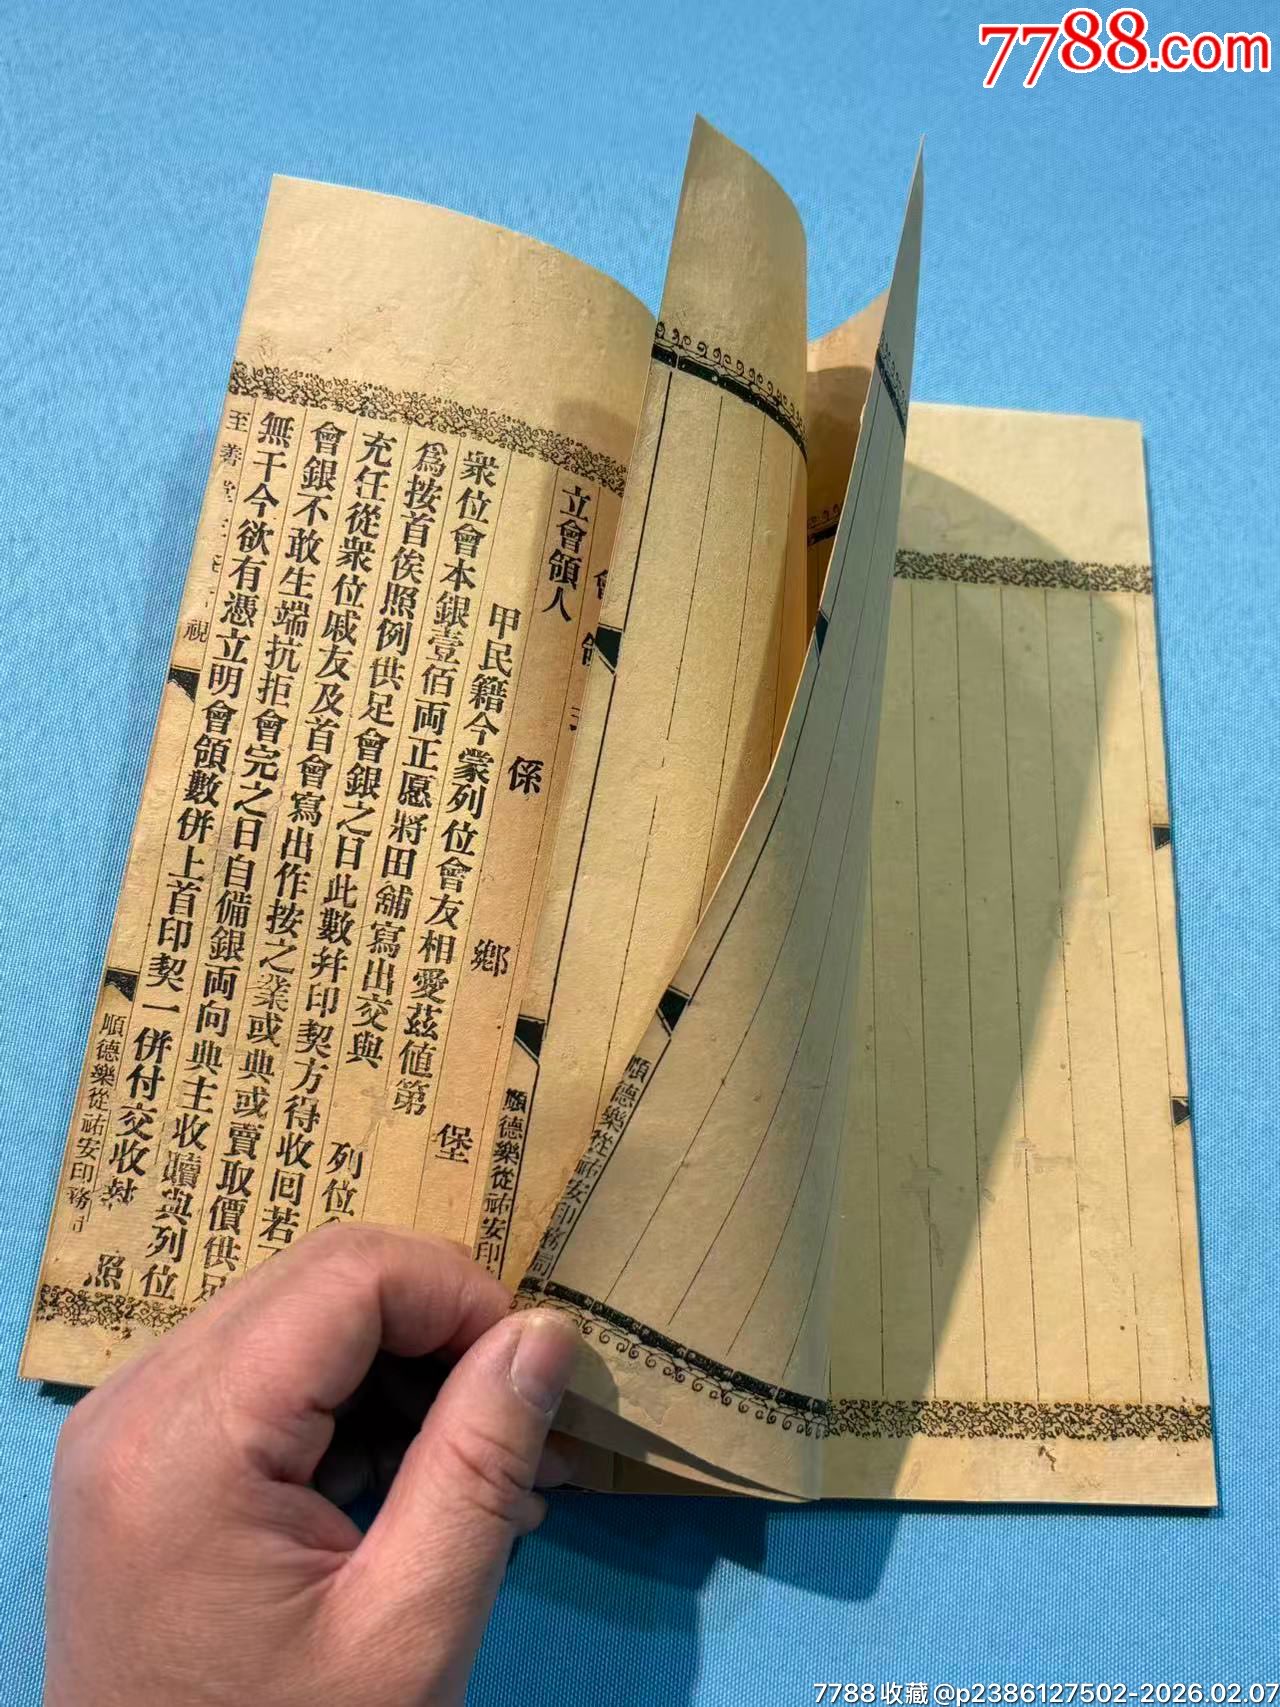 7788.com
會領
立會領人 係 鄉 堡
甲民籍今蒙列位會友相愛茲値第
衆位會本銀壹佰両正愿將田舖寫出交與 列位
爲按首俟照例供足會銀之日此數幷印契方得收回若
充任從衆位戚友及首會寫出作按之業或典或賣取價供足
會銀不敢生端抗拒會完之日自備銀両向典主收贖與列位
無干今欲有憑立明會領數併上首印契一併付交收執 照
至善堂 視
順德樂從祐安印務局
順德樂從祐安印
順德樂從祐安印務局
7788收藏@p2386127502-2026.02.07